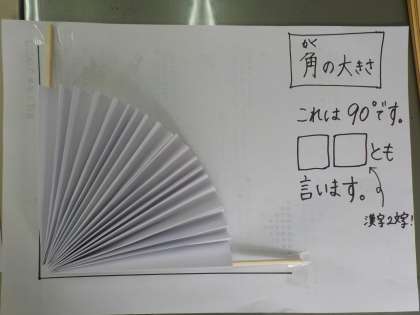 かく
角の大きさ
これは90°です。
□□とも
言います。
漢字2文字!